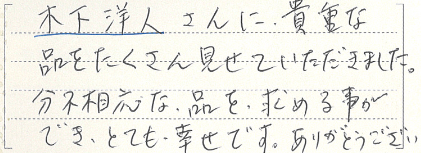 木下洋人さんに、貴重な
品をたくさん見せていただきました。
分不相応な、品を、求める事が
でき、とても、幸せです。ありがとうござい